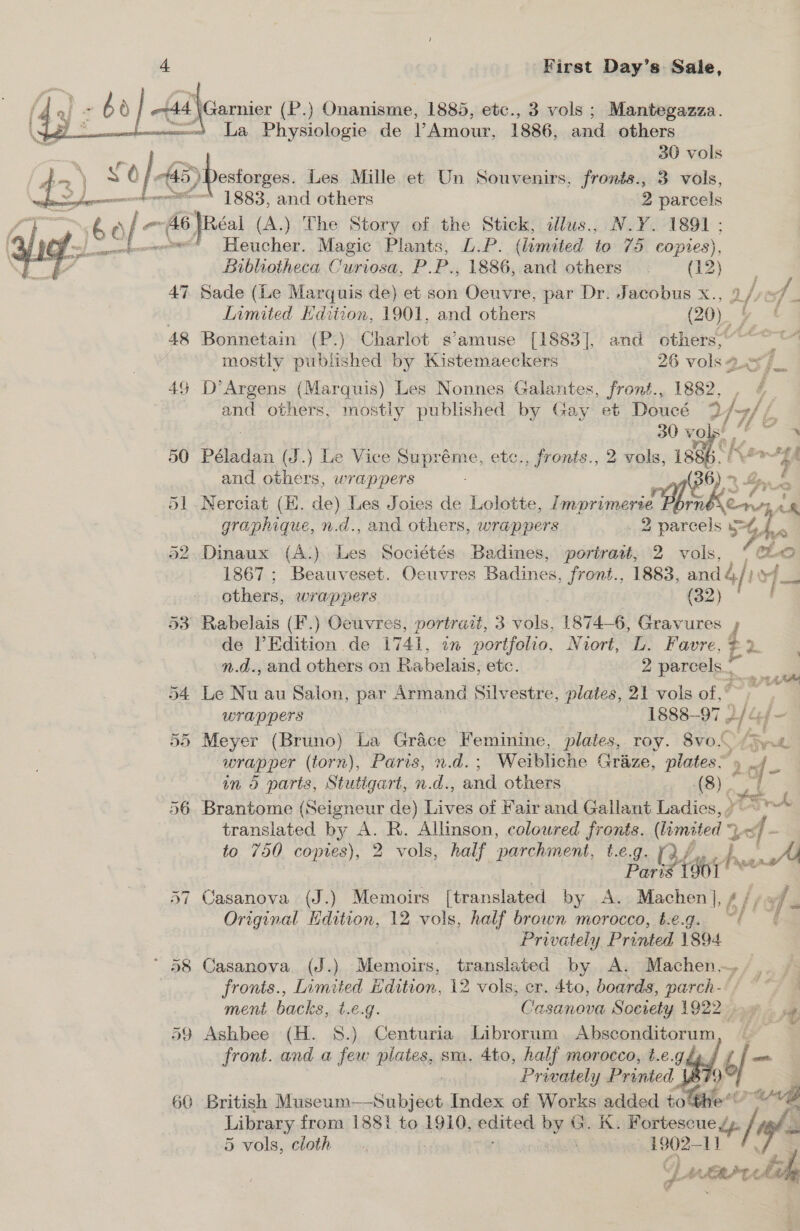 4 First Day's Sale,
44 Garnier (P.) Onanisme, 1885, etc., 3 vols ; Mantegazza.
La Physiologie de l'Amour, 1886, and others
30 vols
45 Desforges. Les Mille et Un Souvenirs, fronts., 3 vols,
1883, and others 2 parcels
46 Réal (A.) The Story of the Stick, illus., N.Y. 1891 ;
Heucher. Magic Plants, L.P. (limited to 75 copies),
Bibliotheca Curiosa, P.P., 1886, and others (12)
47 Sade (Le Marquis de) et son Oeuvre, par Dr. Jacobus x.,
Limited Edition, 1901, and others (20)
48 Bonnetain (P.) Charlot s'amuse [1883], and others,
mostly published by Kistemaeckers 26 vols
49 D'Argens (Marquis) Les Nonnes Galantes, front., 1882,
and others, mostly published by Gay et Doucé
30 vols
50 Péladan (J.) Le Vice Supréme, etc., fronts., 2 vols, 1886,
and others, wrappers (36)
51 Nerciat (E. de) Les Joies de Lolotte, Imprimerie Porno-
graphique, n.d., and others, wrappers 2 parcels
52 Dinaux (A.) Les Sociétés Badines, portrait, 2 vols,
1867 ; Beauveset. Oeuvres Badines, front., 1883, and
others, wrappers (32)
53 Rabelais (F.) Oeuvres, portrait, 3 vols, 1874-6, Gravures
de l'Edition de 1741, in portfolio, Niort, L. Favre,
n.d., and others on Rabelais, etc. 2 parcels
54 Le Nu au Salon, par Armand Silvestre, plates, 21 vols of,
wrappers 1888-97
55 Meyer (Bruno) La Grâce Feminine, plates, roy. 8vo.
wrapper (torn), Paris, n.d. ; Weibliche Gräze, plates,
in 5 parts, Stuttgart, n.d., and others (8)
56 Brantome (Seigneur de) Lives of Fair and Gallant Ladies,
translated by A. R. Allinson, coloured fronts. (limited
to 750 copies), 2 vols, half parchment, t.e.g.
Paris 1901
57 Casanova (J.) Memoirs [translated by A. Machen],
Original Edition, 12 vols, half brown morocco, t.e.g.
Privately Printed 1894
58 Casanova (J.) Memoirs, translated by A. Machen,
fronts., Limited Edition, 12 vols, cr. 4to, boards, parch-
ment backs, t.e.g. Casanova Society 1922
59 Ashbee (H. S.) Centuria Librorum Absconditorum,
front. and a few plates, sm. 4to, half morocco, t.e.g.
Privately Printed 1879
60 British Museum—Subject Index of Works added to the
Library from 1881 to 1910, edited by G. K. Fortescue
5 vols, cloth 1902-11